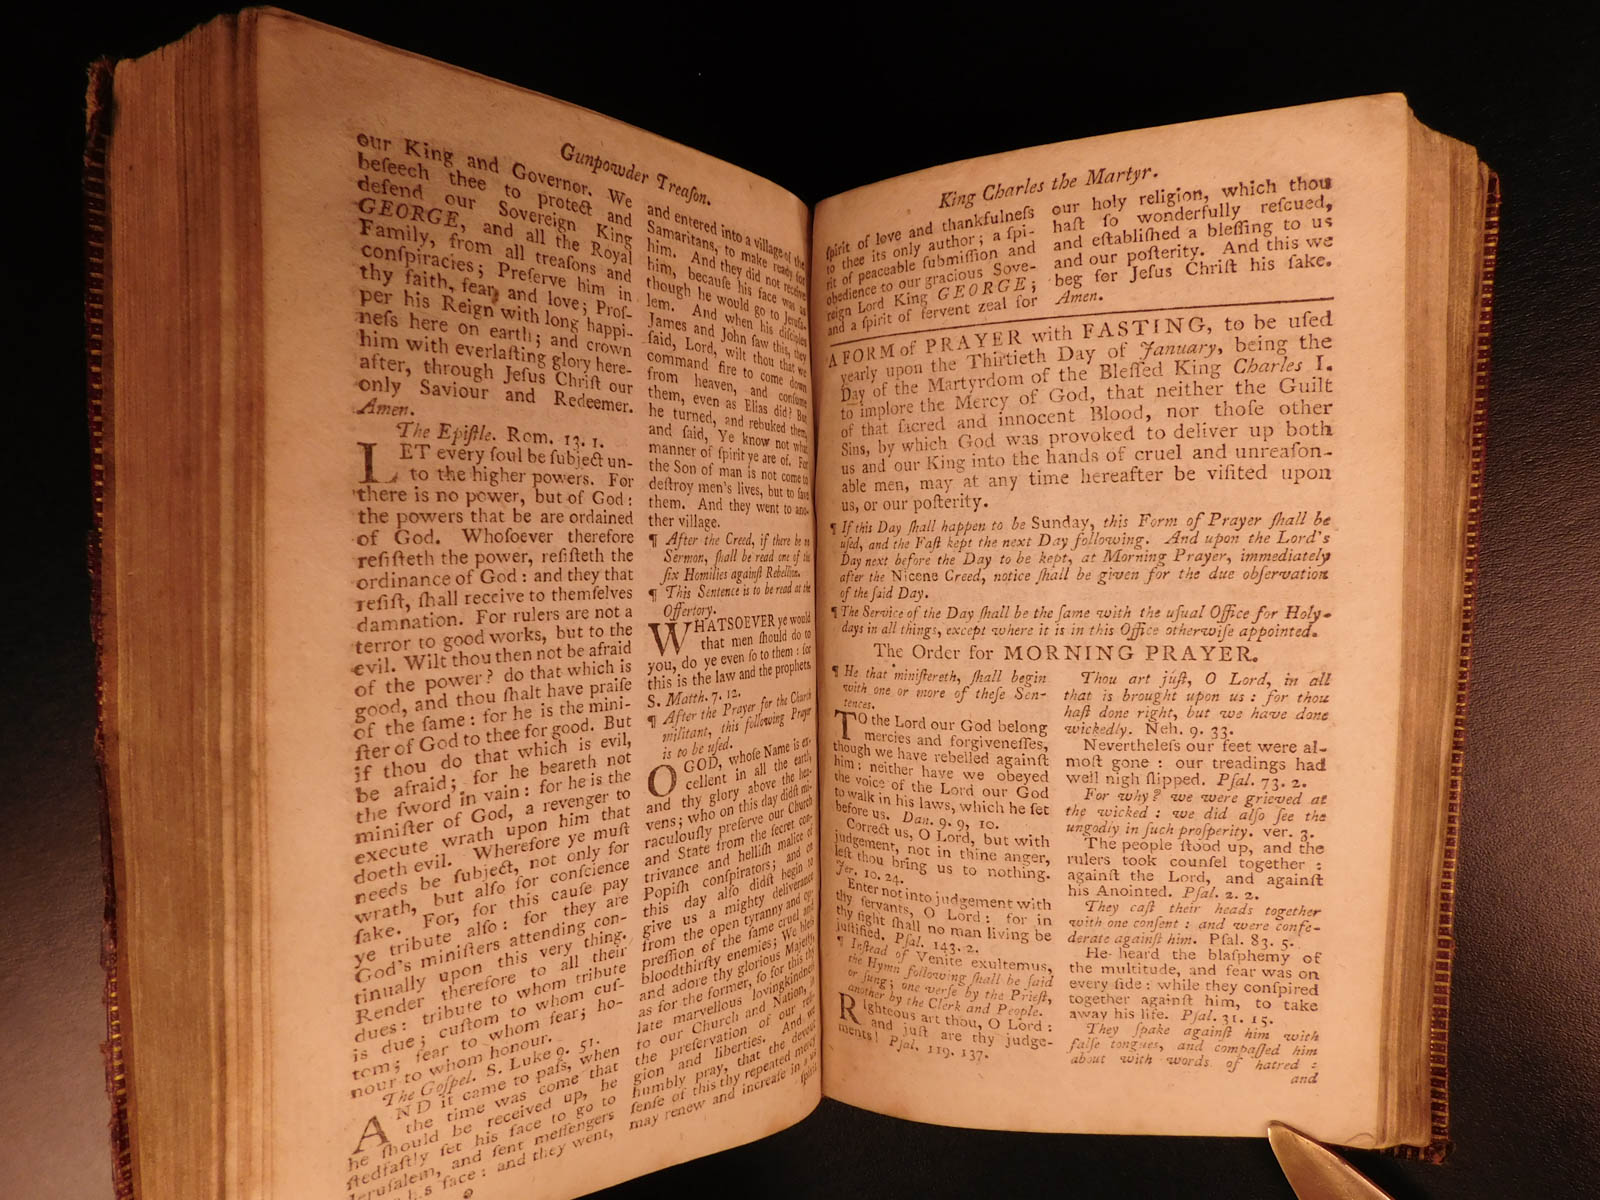 Gunpowder Treaſon.
our King and Governor. We
beſeech thee to protect and
defend our Sovereign King
GEORGE, and all the Royal
Family, from all treaſons and
conſpiracies; Preſerve him in
thy faith, fear, and love; Proſ-
per his Reign with long happi-
neſs here on earth; and crown
him with everlaſting glory here-
after, through Jeſus Chriſt our
only Saviour and Redeemer.
Amen.
The Epiſtle. Rom. 13. 1.
LET every ſoul be ſubject un-
to the higher powers. For
there is no power, but of God:
the powers that be are ordained
of God. Whoſoever therefore
reſiſteth the power, reſiſteth the
ordinance of God: and they that
reſiſt, ſhall receive to themſelves
damnation. For rulers are not a
terror to good works, but to the
evil. Wilt thou then not be afraid
of the power? do that which is
good, and thou ſhalt have praiſe
of the ſame: for he is the mini-
ſter of God to thee for good. But
if thou do that which is evil,
be afraid; for he beareth not
the ſword in vain: for he is the
miniſter of God, a revenger to
execute wrath upon him that
doeth evil. Wherefore ye muſt
needs be ſubject, not only for
wrath, but alſo for conſcience
ſake. For, for this cauſe pay
ye tribute alſo: for they are
God's miniſters attending con-
tinually upon this very thing.
Render therefore to all their
dues: tribute to whom tribute
is due; cuſtom to whom cuſ-
tom; fear to whom fear; ho-
nour to whom honour.
The Goſpel. S. Luke 9. 51.
AND it came to paſs, when
the time was come that
he ſhould be received up, he
ſtedfaſtly ſet his face to go to
Jeruſalem, and ſent meſſengers
his face: and they went,
and entered into a village of the
Samaritans, to make ready for
him. And they did not receive
him, becauſe his face was as
though he would go to Jeruſa-
lem. And when his diſciples
James and John ſaw this, they
ſaid, Lord, wilt thou that we
command fire to come down
from heaven, and conſume
them, even as Elias did? But
he turned, and rebuked them,
and ſaid, Ye know not what
manner of ſpirit ye are of. For
the Son of man is not come to
deſtroy men's lives, but to ſave
them. And they went to ano-
ther village.
¶ After the Creed, if there be no
Sermon, ſhall be read one of the
ſix Homilies againſt Rebellion.
¶ This Sentence is to be read at the
Offertory.
WHATSOEVER ye would
that men ſhould do to
you, do ye even ſo to them: for
this is the law and the prophets.
S. Matth. 7. 12.
¶ After the Prayer for the Church
militant, this following Prayer
is to be uſed.
O GOD, whoſe Name is ex-
cellent in all the earth,
and thy glory above the hea-
vens; who on this day didſt mi-
raculouſly preſerve our Church
and State from the ſecret con-
trivance and helliſh malice of
Popiſh conſpirators; and on
this day alſo didſt begin to
give us a mighty deliverance
from the open tyranny and op-
preſſion of the ſame cruel and
bloodthirſty enemies; We bleſs
and adore thy glorious Majeſty,
as for the former, ſo for this thy
late marvellous lovingkindneſs
to our Church and Nation, in
the preſervation of our reli-
gion and liberties. And we
humbly pray, that the devout
ſenſe of this thy repeated mercy
may renew and increaſe in us a
ſpirit
King Charles the Martyr.
ſpirit of love and thankfulneſs
to thee its only author; a ſpi-
rit of peaceable ſubmiſſion and
obedience to our gracious Sove-
reign Lord King GEORGE;
and a ſpirit of fervent zeal for
our holy religion, which thou
haſt ſo wonderfully reſcued,
and eſtabliſhed a bleſſing to us
and our poſterity. And this we
beg for Jeſus Chriſt his ſake.
Amen.
A FORM of PRAYER with FASTING, to be uſed
yearly upon the Thirtieth Day of January, being the
Day of the Martyrdom of the Bleſſed King Charles I.
to implore the Mercy of God, that neither the Guilt
of that ſacred and innocent Blood, nor thoſe other
Sins, by which God was provoked to deliver up both
us and our King into the hands of cruel and unreaſon-
able men, may at any time hereafter be viſited upon
us, or our poſterity.
¶ If this Day ſhall happen to be Sunday, this Form of Prayer ſhall be
uſed, and the Faſt kept the next Day following. And upon the Lord's
Day next before the Day to be kept, at Morning Prayer, immediately
after the Nicene Creed, notice ſhall be given for the due obſervation
of the ſaid Day.
¶ The Service of the Day ſhall be the ſame with the uſual Office for Holy-
days in all things, except where it is in this Office otherwiſe appointed.
The Order for MORNING PRAYER.
¶ He that miniſtereth, ſhall begin
with one or more of theſe Sen-
tences.
TO the Lord our God belong
mercies and forgiveneſſes,
though we have rebelled againſt
him: neither have we obeyed
the voice of the Lord our God
to walk in his laws, which he ſet
before us. Dan. 9. 9, 10.
Correct us, O Lord, but with
judgement, not in thine anger,
leſt thou bring us to nothing.
Jer. 10. 24.
Enter not into judgement with
thy ſervants, O Lord: for in
thy ſight ſhall no man living be
juſtified. Pſal. 143. 2.
¶ Inſtead of Venite exultemus,
the Hymn following ſhall be ſaid
or ſung; one verſe by the Prieſt,
another by the Clerk and People.
Righteous art thou, O Lord:
and juſt are thy judge-
ments! Pſal. 119. 137.
Thou art juſt, O Lord, in all
that is brought upon us: for thou
haſt done right, but we have done
wickedly. Neh. 9. 33.
Nevertheleſs our feet were al-
moſt gone: our treadings had
well nigh ſlipped. Pſal. 73. 2.
For why? we were grieved at
the wicked: we did alſo ſee the
ungodly in ſuch proſperity. ver. 3.
The people ſtood up, and the
rulers took counſel together:
againſt the Lord, and againſt
his Anointed. Pſal. 2. 2.
They caſt their heads together
with one conſent: and were confe-
derate againſt him. Pſal. 83. 5.
He heard the blaſphemy of
the multitude, and fear was on
every ſide: while they conſpired
together againſt him, to take
away his life. Pſal. 31. 15.
They ſpake againſt him with
falſe tongues, and compaſſed him
about with words of hatred:
and